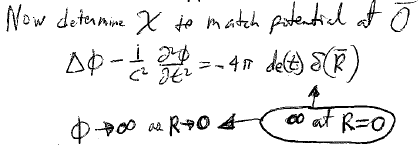 Now determine χ to match potential at O̅
Δϕ - 1/c² ∂²ϕ/∂t² = -4π de(t) δ(R̅)
ϕ→∞ as R→0 ← ∞ at R=0